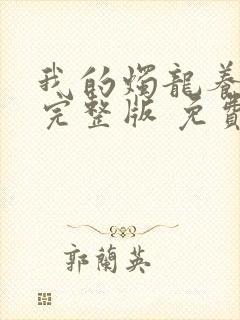 我的燭龍養
完整版 免費
郭蘭英